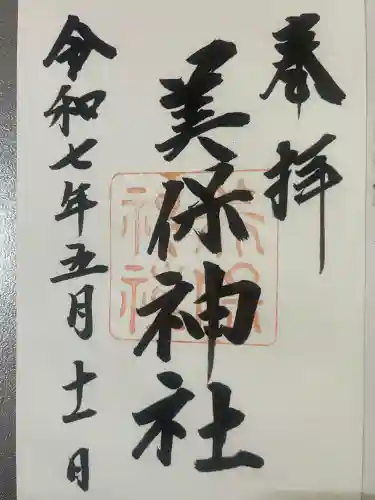 奉拝
美保神社
令和七年五月十一日